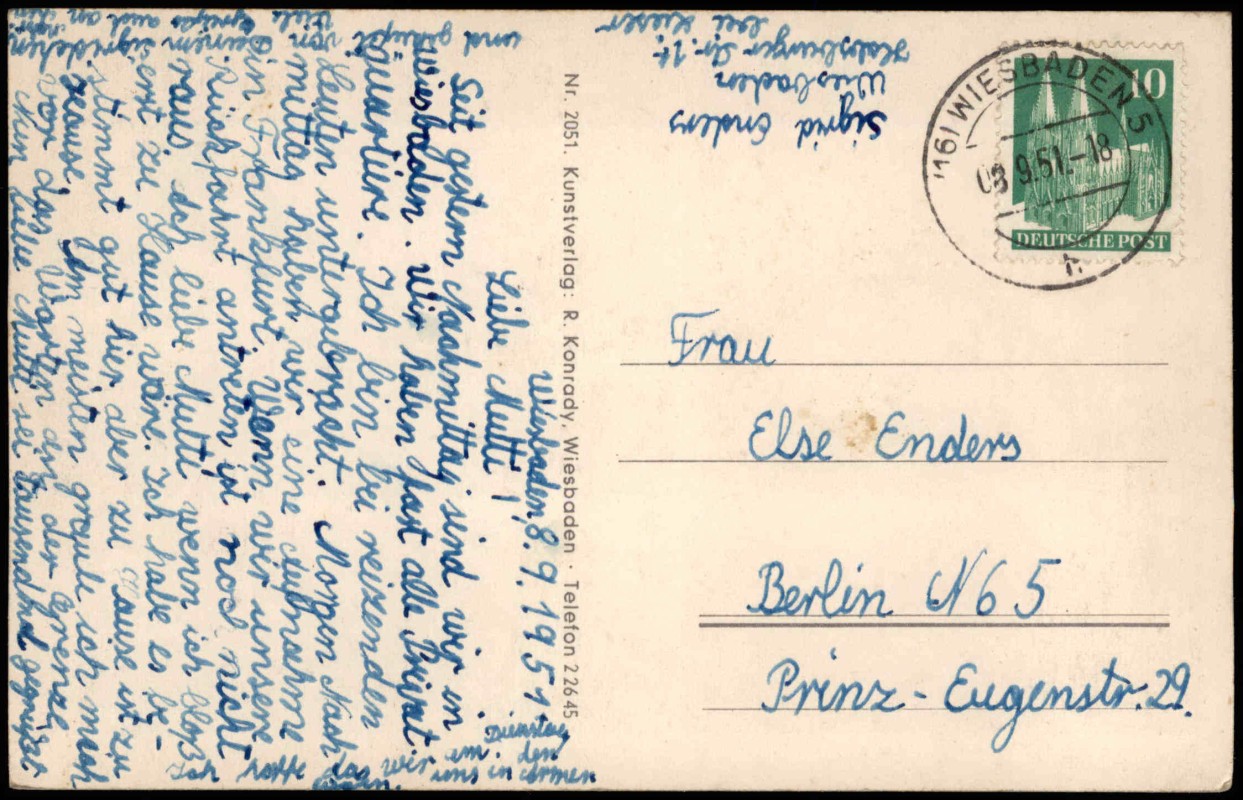 Wiesbaden, 8.9.1951
Liebe Mutti!
Seit gestern Nachmittag sind wir in
Wiesbaden. Wir haben fast alle Privat
Quartiere. Ich bin bei reizenden
Leuten untergebracht. Morgen Nach
mittag haben wir eine Aufnahme
in Frankfurt. Wann wir unsere
Rückfahrt antreten, ist noch nicht
raus. Ach liebe Mutti wenn ich bloß
erst zu Hause wäre. Ich habe es be-
stimmt gut hier aber zu Hause ist zu
Hause. Am meisten graule ich mich
vor das Warten an der Grenze.
Nun liebe Mutti sei tausendmal gegrüßt
und geküßt
von Deinem Sigridelein
Viele Grüße auch an
Ich hoffe das wir am Dienstag
uns in den Armen
Nr. 2051. Kunstverlag: R. Konrady, Wiesbaden · Telefon 22645
Sigrid Enders
Wiesbaden
Habsburger Str. 14
bei
(16) WIESBADEN 5
08.9.51.-18
h
10
DEUTSCHE POST
Frau
Else Enders
Berlin N 65
Prinz-Eugenstr. 29.